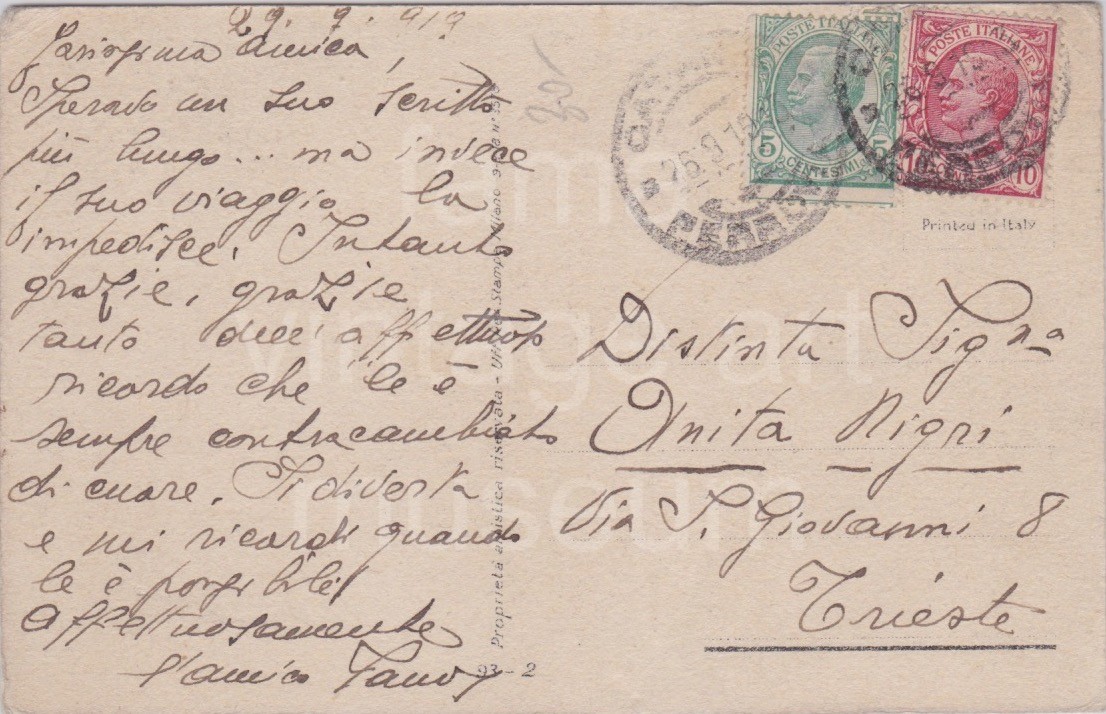 29. 9. 919
Carissima Amica,
Speravo un suo scritto
più lungo... ma invece
il suo viaggio la
impedisce. Intanto
grazie, grazie
tanto dell'affettuoso
ricordo che le è
sempre contracambiato
di cuore. Si diverta
e mi ricordi quando
le è possibile!
Affettuosamente
l'amica
30
POSTE ITALIANE
5 CENTESIMI 5
POSTE ITALIANE
10 10
25.9.19
Printed in Italy
Distinta Signa
Anita Nigri
Via S. Giovanni 8
Trieste
Proprietà artistica riservata - Stampe
93-2
vintage art
museum